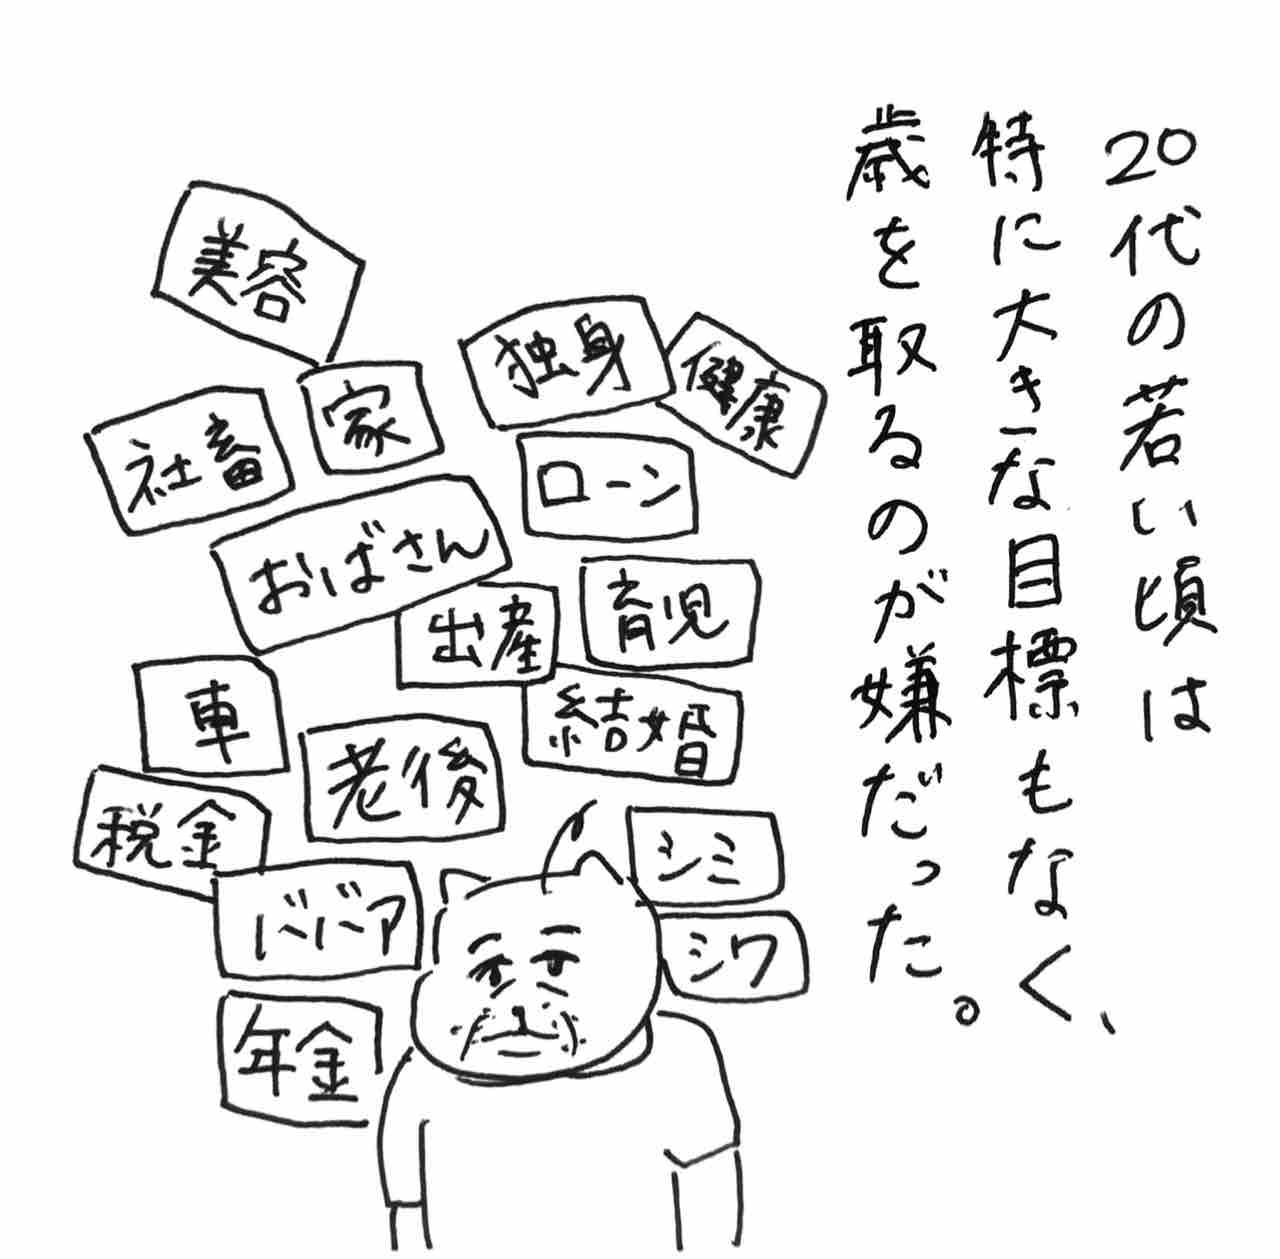 20代の若い頃は
特に大きな目標もなく、
歳を取るのが嫌だった。
美容
独身
健康
家
社畜
ローン
おばさん
出産
育児
車
結婚
老後
税金
シミ
ババア
シワ
年金